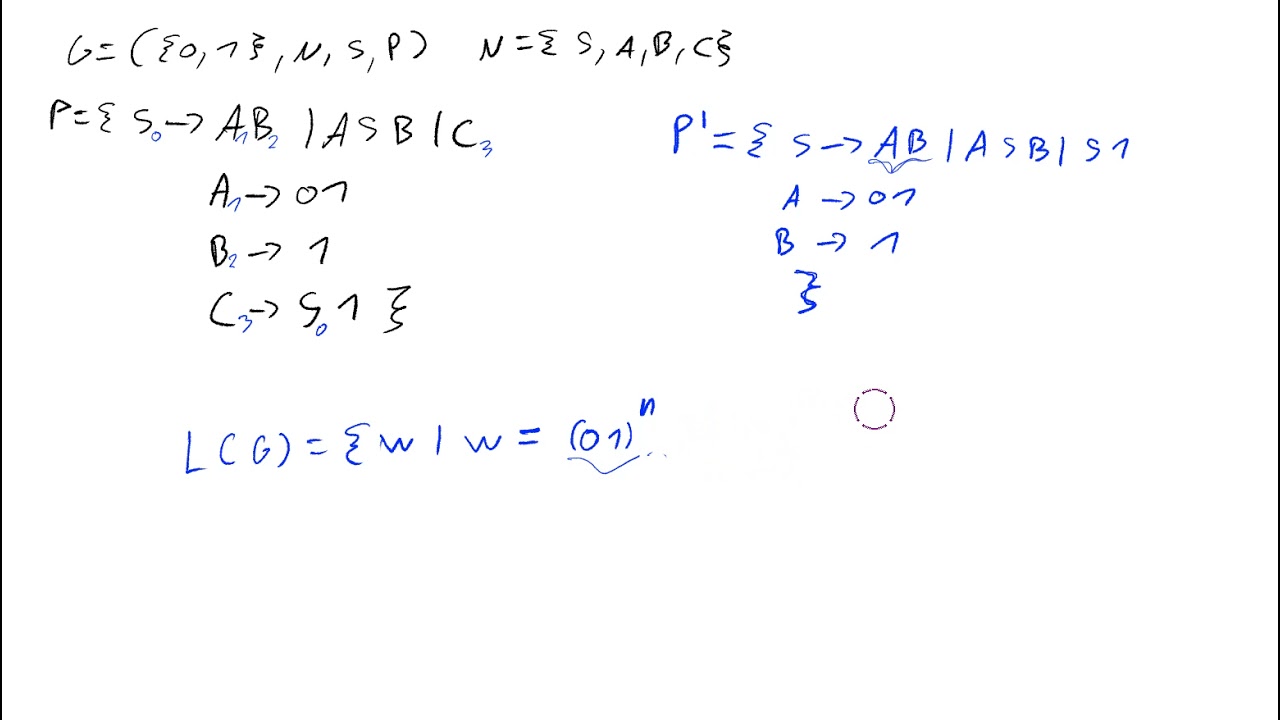 G=({0,1},N,S,P) N={S,A,B,C}
P={S₀→A₁B₂|ASB|C₃
A₁→01
B₂→1
C₃→S₀1}
P'={S→AB|ASB|S1
A→01
B→1
}
L(G)={w|w=(01)ⁿ...